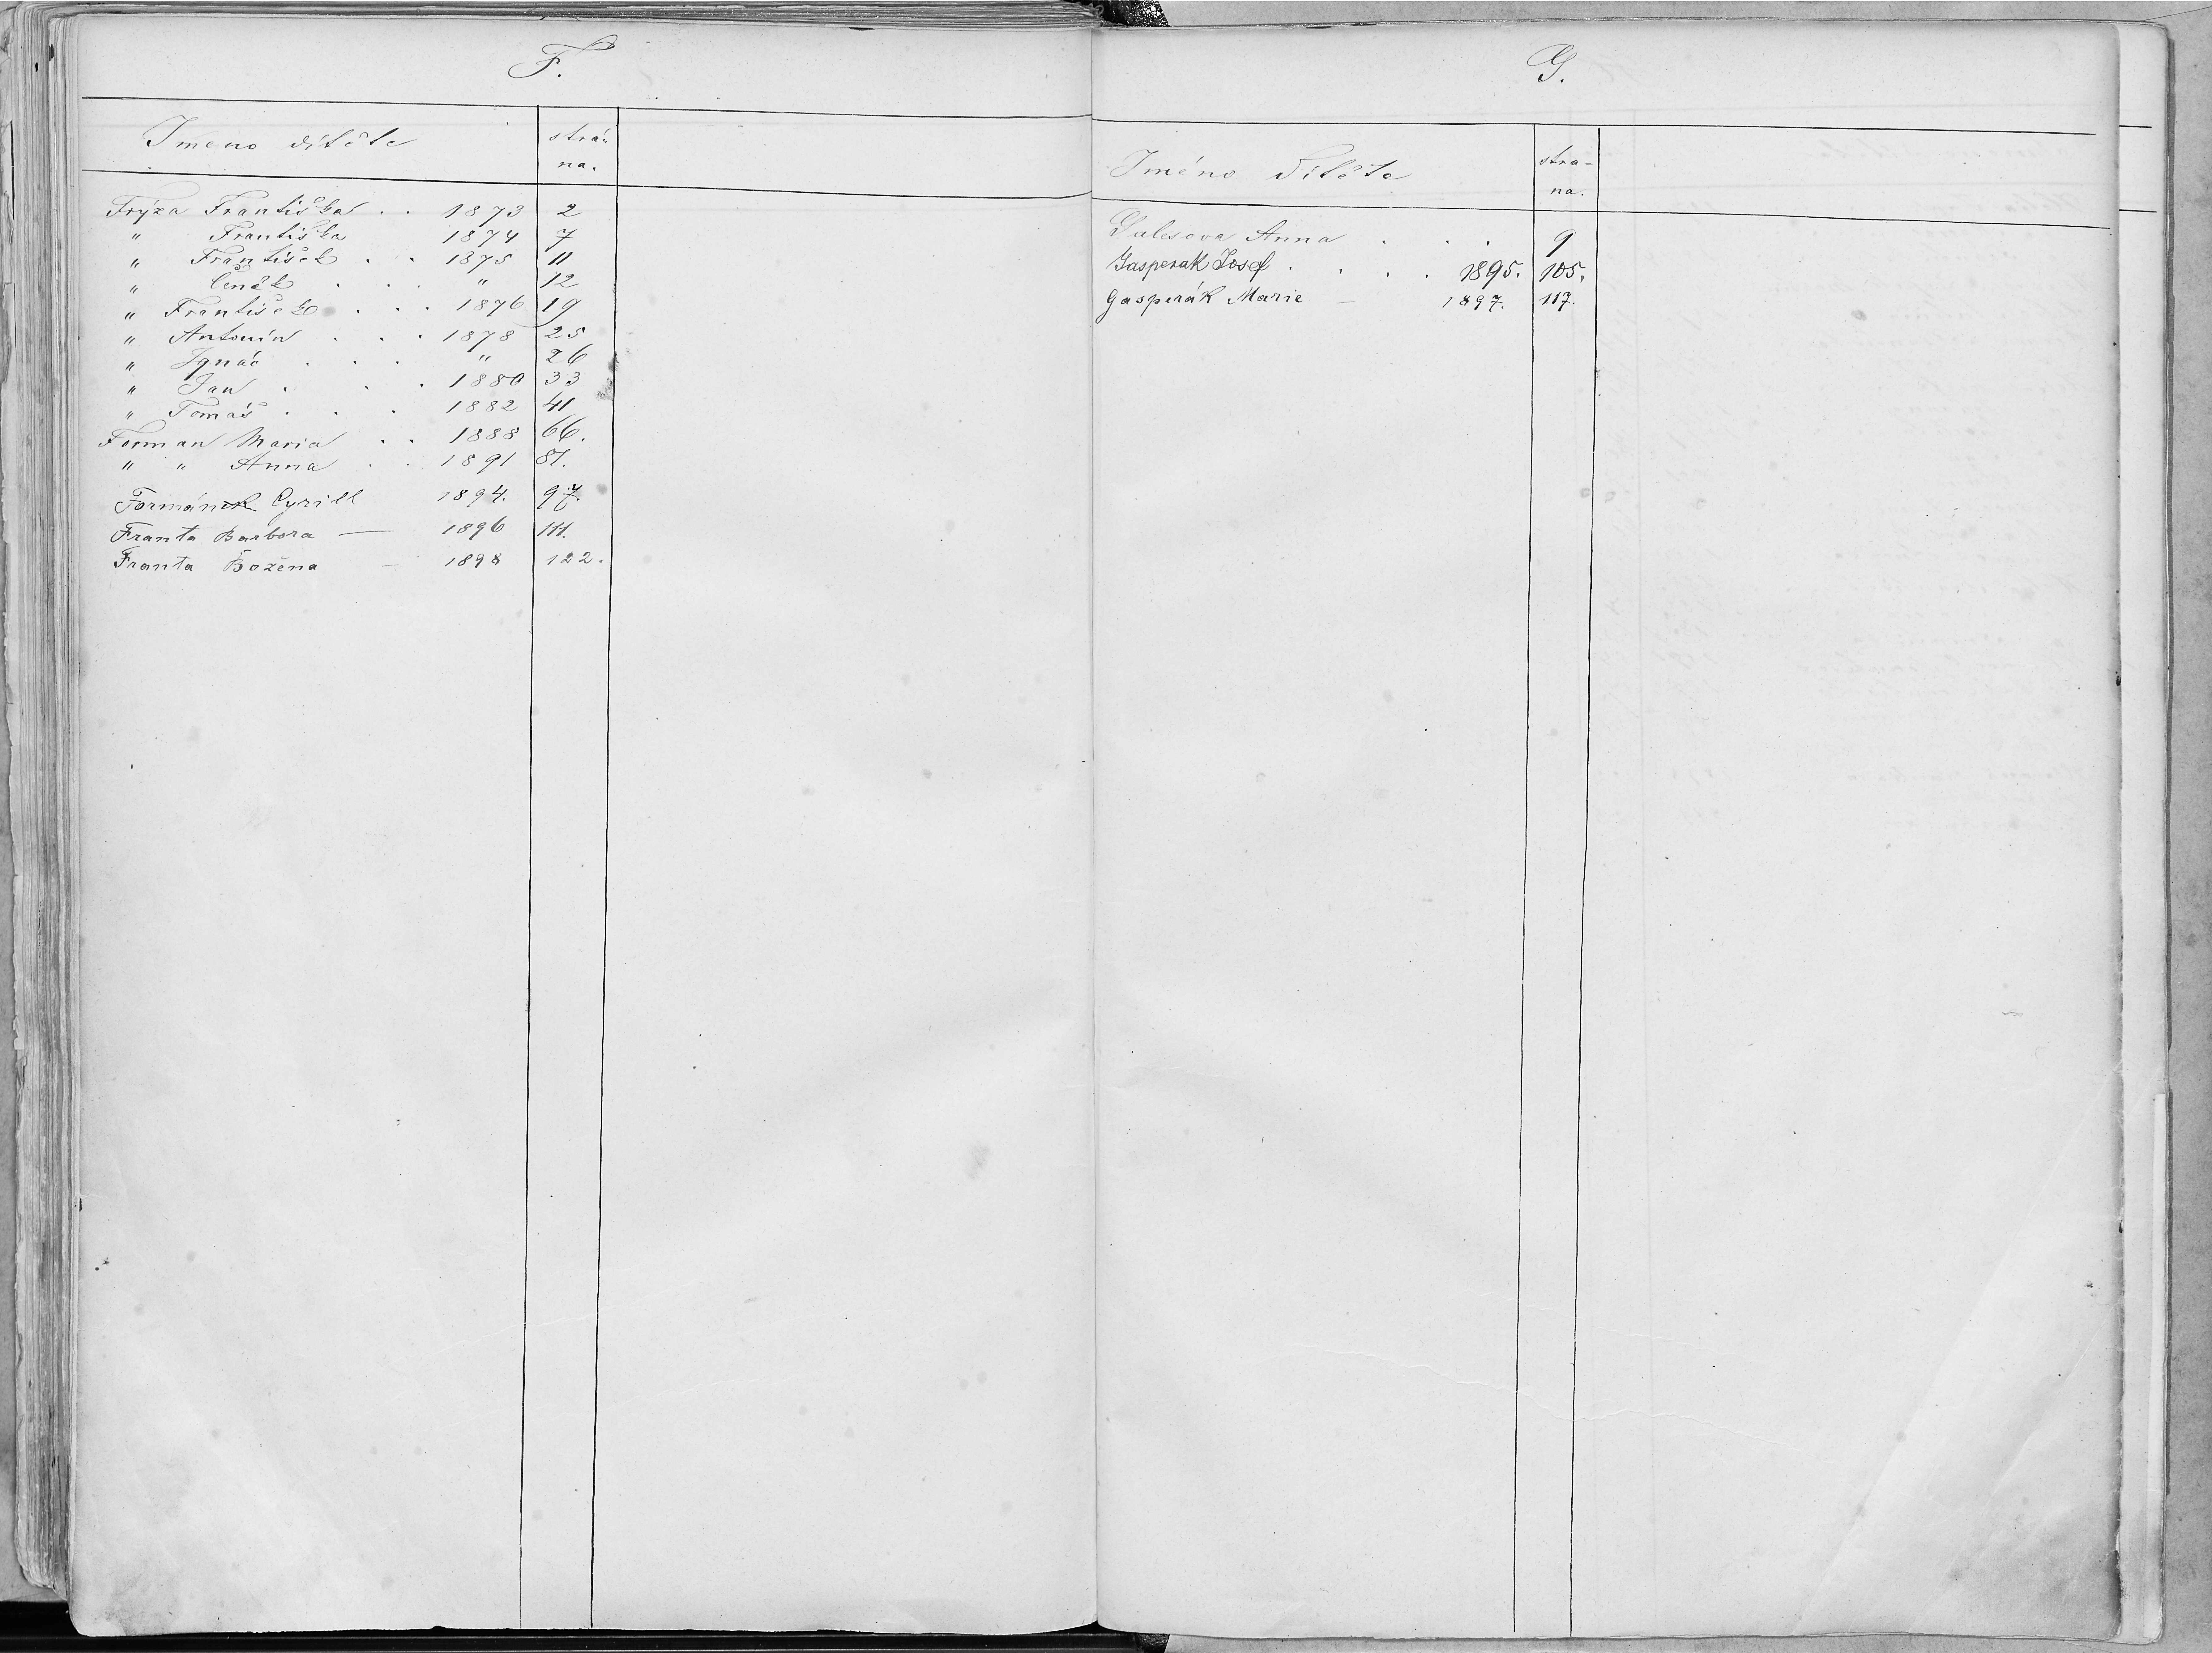 F.
Jmeno dítěte strá-
na.
Frýza Františka . . 1873 2
" Františka 1874 7
" František . . 1875 11
" Čeněk . . . " 12
" František . . . 1876 19
" Antonín . . . 1878 25
" Ignác . . . " 26
" Jan . . . 1880 33
" Tomáš . . . 1882 41
Forman Maria . . 1888 66.
" " Anna . . 1891 81.
Formánek Cyrill 1894. 97.
Franta Barbora — 1896 111.
Franta Božena — 1898 122.
G.
Jméno Dítěte stra-
na.
Galesova Anna . . . 9
Gasperak Josef . . . . 1895. 105.
Gasperák Marie — 1897. 117.